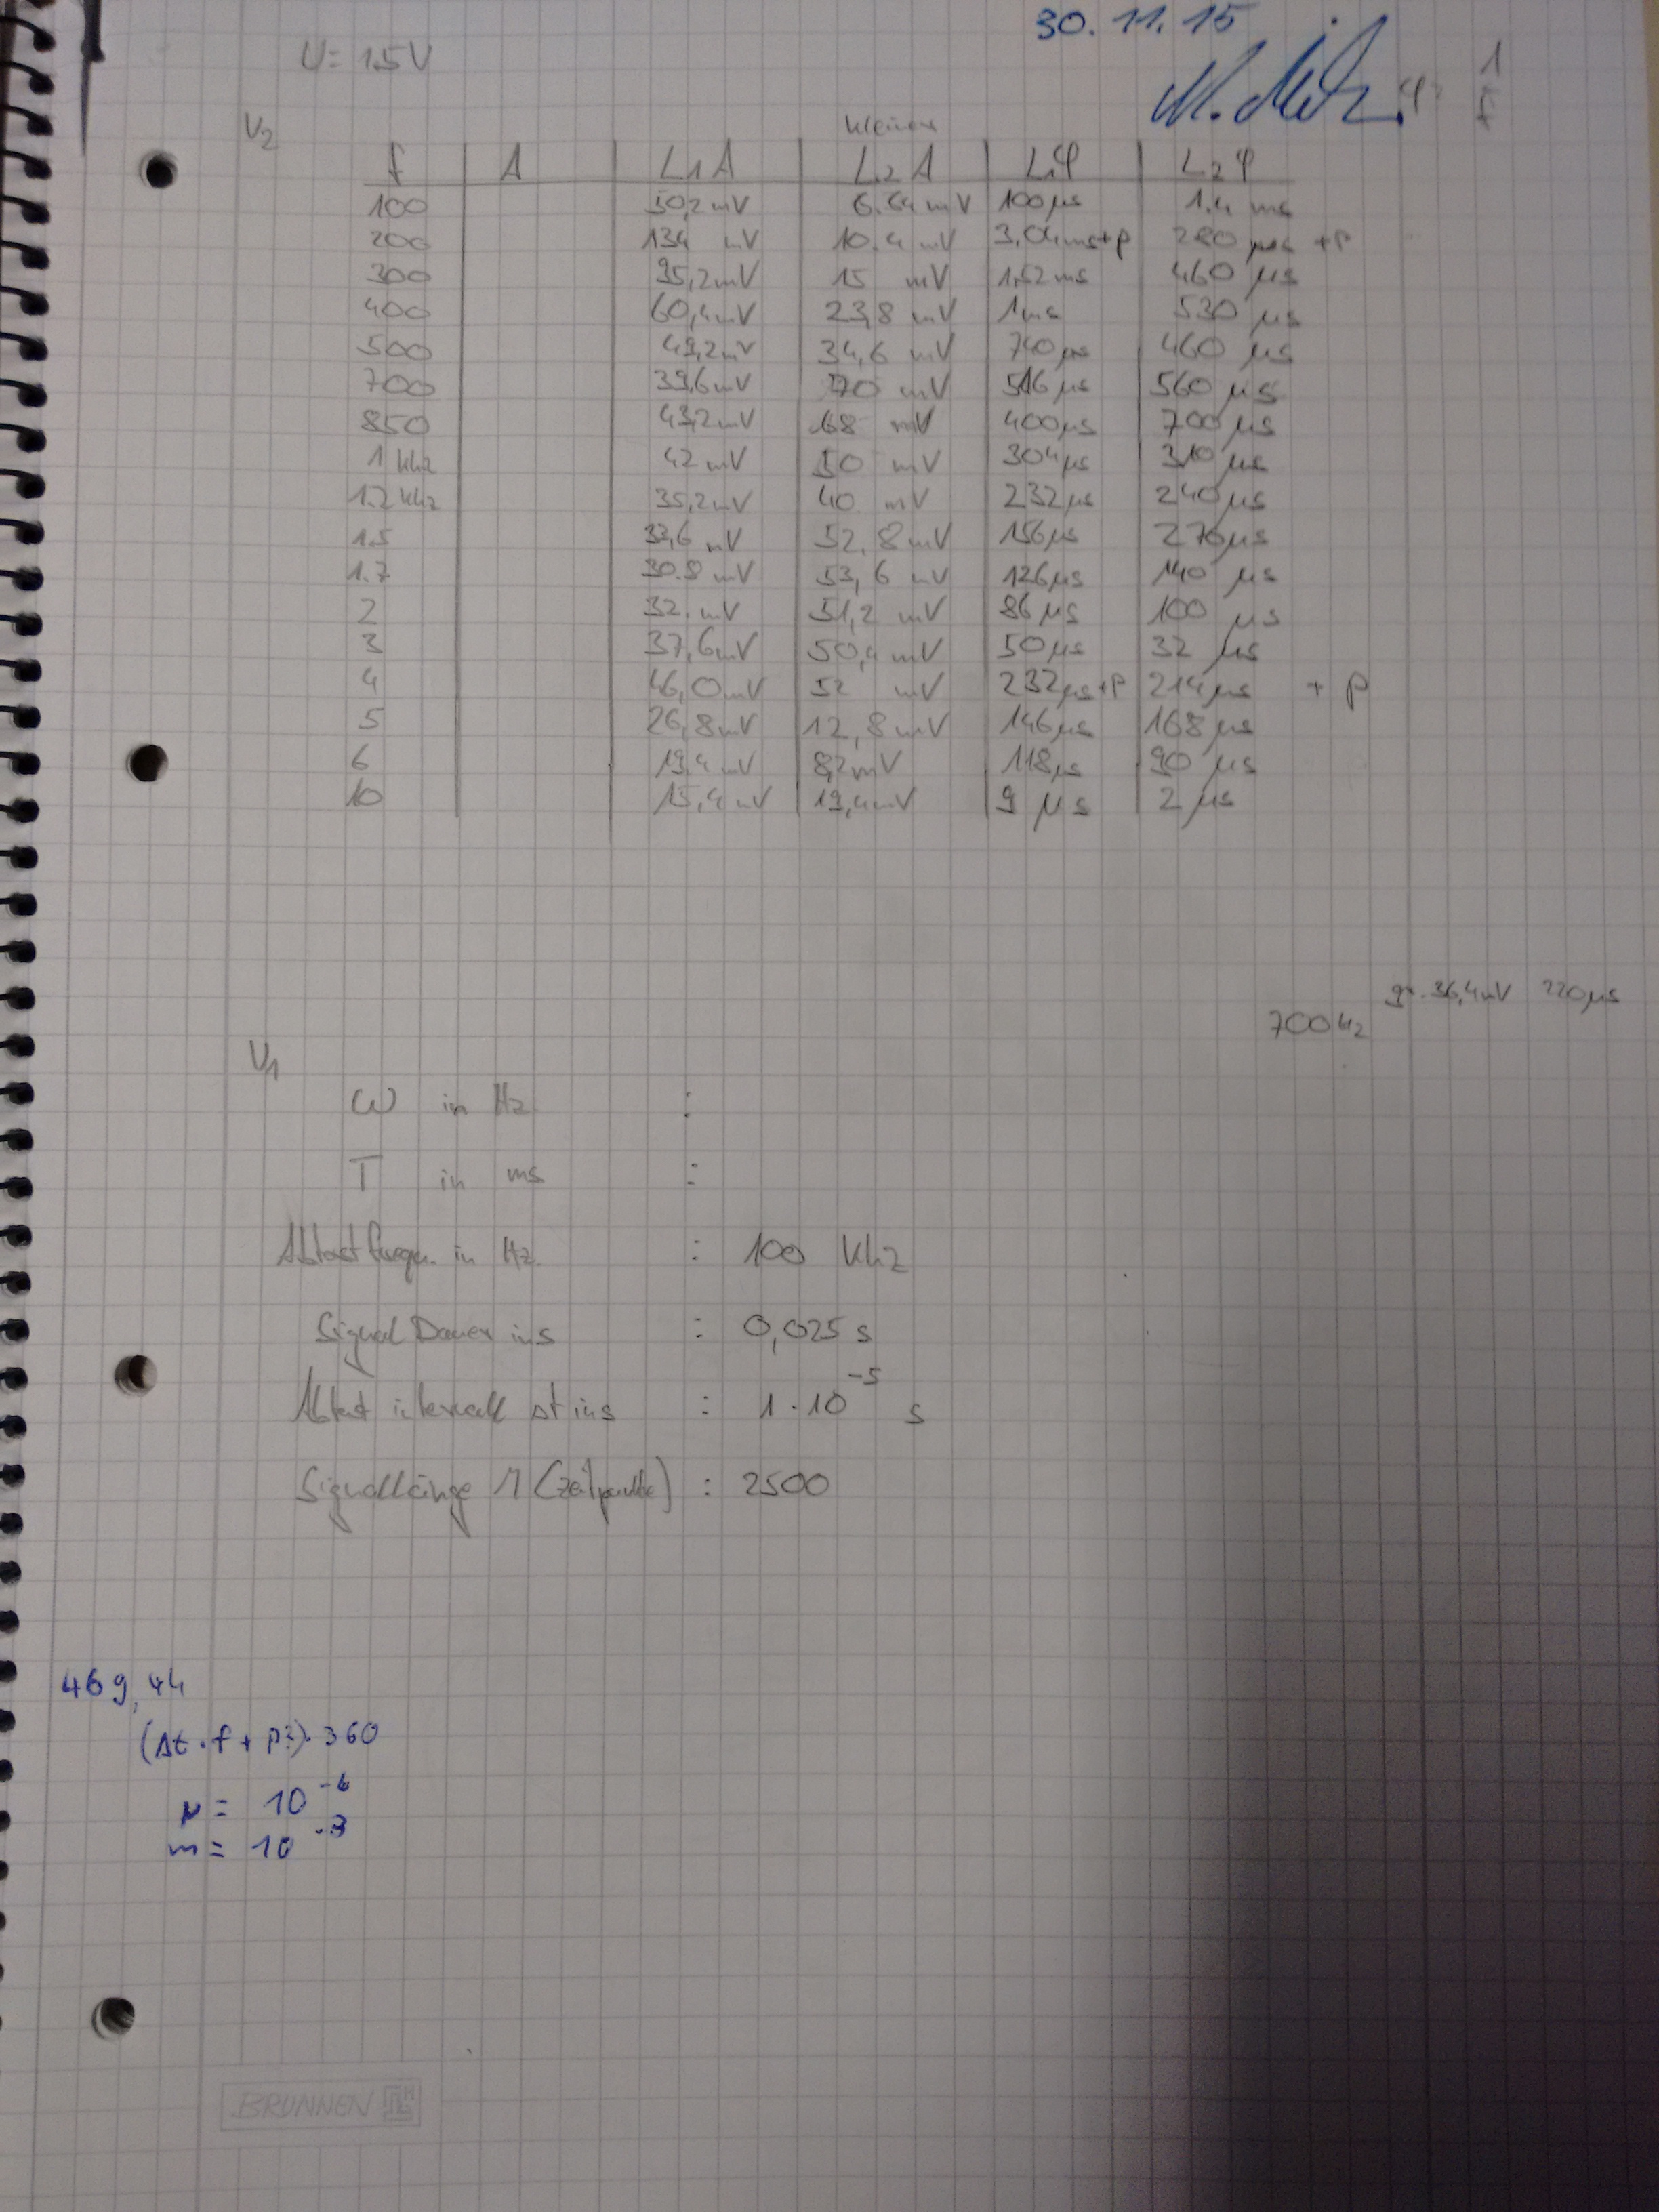 30.11.15
U = 1.5V
1
f
V2
kleiner
f A L1 A L2 A L1 φ L2 φ
100 50,2 mV 6.64 mV 100 µs 1.4 ms
200 134 mV 10.4 mV 3,04ms+P 280 µs +P
300 95,2mV 15 mV 1,52ms 460 µs
400 60,4mV 23,8 mV 1ms 530 µs
500 49,2mV 34,6 mV 740µs 460 µs
700 39,6mV 70 mV 516µs 560 µs
850 43,2mV 68 mV 400µs 700µs
1 khz 42 mV 50 mV 304µs 310µs
1.2 khz 35,2mV 40 mV 232µs 240µs
1.5 33,6 mV 52,8mV 156µs 270µs
1.7 30.8 mV 53,6 mV 126µs 140 µs
2 32. mV 51,2 mV 86µs 100 µs
3 37,6mV 50,4mV 50µs 32 µs
4 46,0mV 52 mV 232µs+P 214µs + P
5 26,8mV 12,8mV 146µs 168µs
6 19,4mV 8,2mV 118µs 90 µs
10 15,4mV 19,4mV 9 µs 2 µs
gr. 36,4mV 220µs
700Hz
V1
ω in Hz :
T in ms :
Abtastfreqen. in Hz. : 100 Khz
Signal Dauer in s : 0,025 s
Abtast intervall Δt in s : 1·10⁻⁵ s
Signallänge M (Zeitpunkte) : 2500
469,44
(Δt·f + P?)·360
µ = 10⁻⁶
m = 10⁻³
BRUNNEN